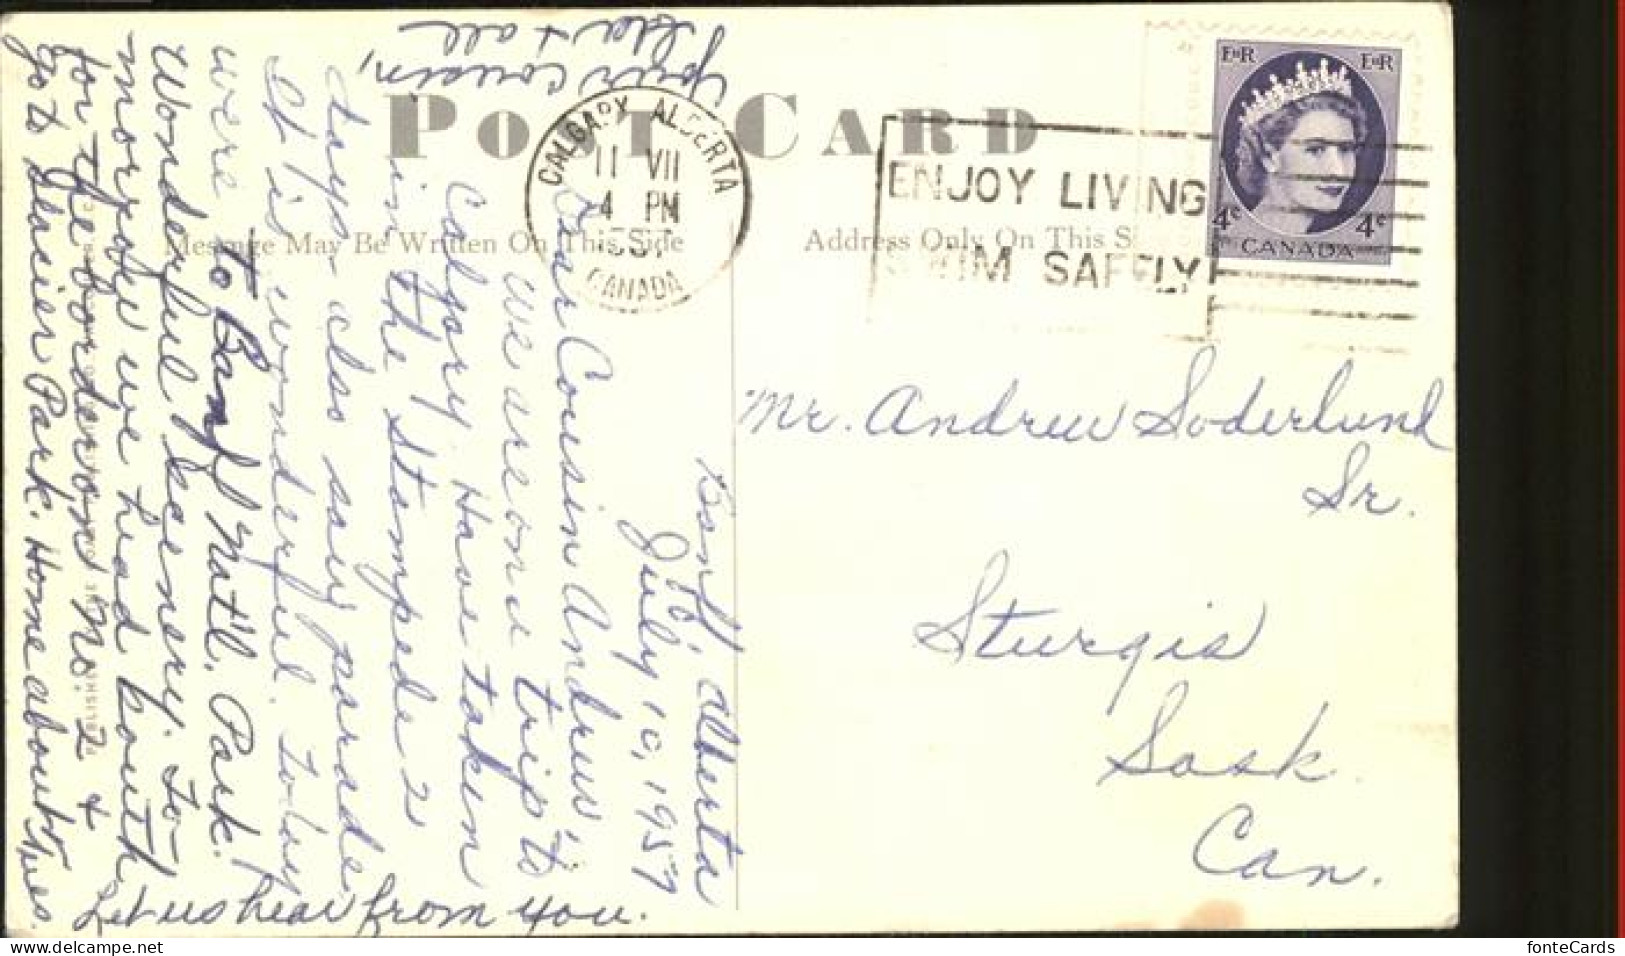 POST CARD
Message May Be Written On This Side
Address Only On This
CALGARY ALBERTA
11 VII
4 PM
CANADA
ENJOY LIVING
SWIM SAFELY
EIIR EIIR
4c 4c
CANADA
Banff, Alberta
July 10, 1957
Dear Cousin Andrew,
We are on a trip to
Calgary. Have taken
in the Stampede 2
days - also saw parade
It is wonderful. Today
were to Banf Nat'l. Park.
Wonderful scenery. To-
morrow we head south
for the border on No. 2 +
go to Glacier Park. Home about Tues.
Let us hear from you.
Your cousin,
+ all
Mr. Andrew Soderlund
Sr.
Sturgis
Sask.
Can.
fonteCards